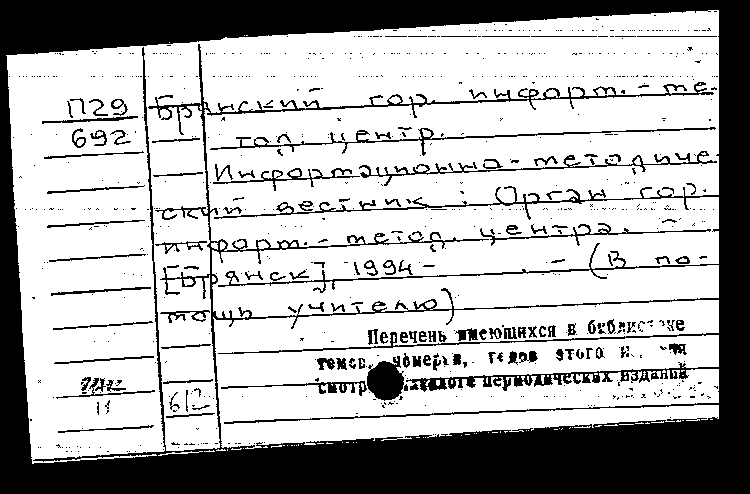 П29 Брянский гор. информ.-ме-
692 тод. центр.
Информационно-методиче-
ский вестник : Орган гор.
информ.-метод. центра. -
[Брянск], 1994- . - (В по-
мощь учителю)
Перечень имеющихся в библиотеке
томов, номеров, годов этого
смотри каталоге периодических изданий
11 612